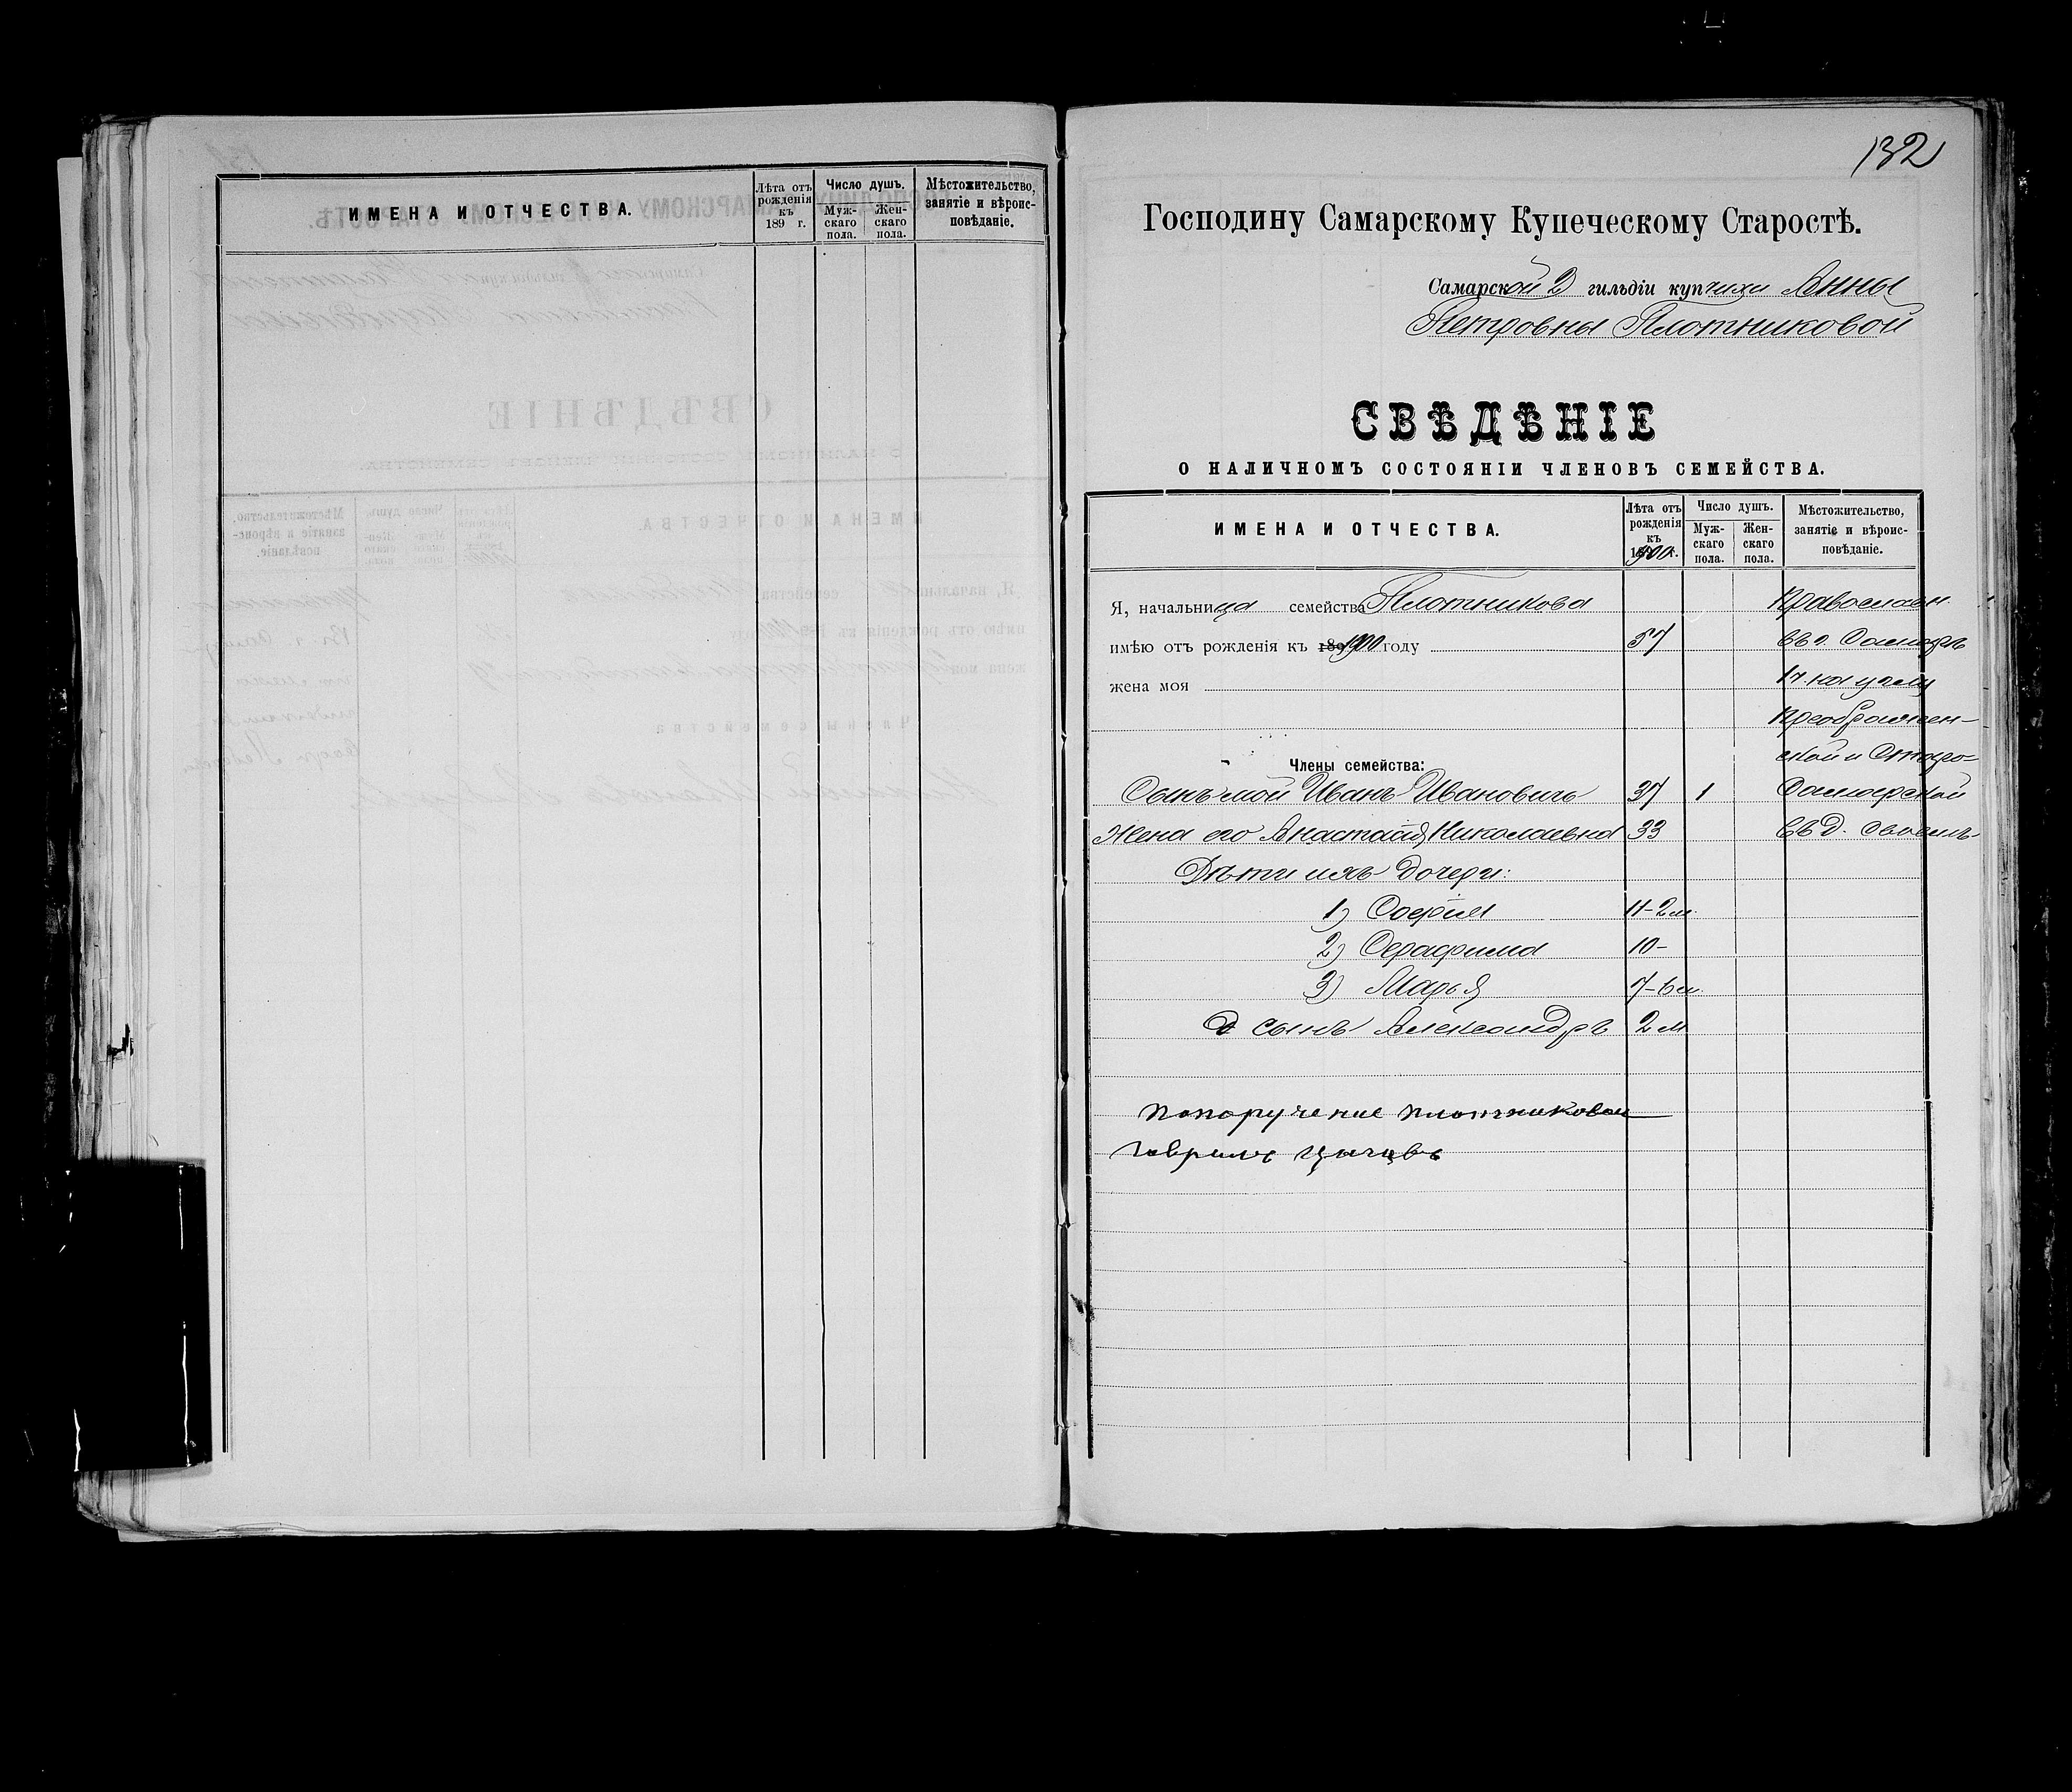 ИМЕНА И ОТЧЕСТВА.
Лѣта отъ рожденія къ 189 г.
Число душъ.
Муж-скаго пола.
Жен-скаго пола.
Мѣстожительство, занятіе и вѣроис-повѣданіе.
132
Господину Самарскому Купеческому Старостѣ.
Самарской 2 гильдіи купчихи Анны
Петровны Плотниковой
СВѢДѢНІЕ
О НАЛИЧНОМЪ СОСТОЯНІИ ЧЛЕНОВЪ СЕМЕЙСТВА.
ИМЕНА И ОТЧЕСТВА.
Лѣта отъ рожденія къ 1900 г.
Число душъ.
Муж-скаго пола.
Жен-скаго пола.
Мѣстожительство, занятіе и вѣроис-повѣданіе.
Я, начальница семейства Плотникова Православн.
имѣю отъ рожденія къ 1900 году 57 въ г. Самарѣ
жена моя на углу
Преображен-
ской и Старо-
Члены семейства:
Сынъ мой Иванъ Ивановичъ 37 1 Самарской
Жена его Анастасія Николаевна 33 въ д.
Дѣти ихъ дочери:
1) Софія 11-2 м.
2) Серафима 10-
3) Марья 7-6 м.
сынъ Александръ 2 м
По поручение плотниковой
гаврилъ